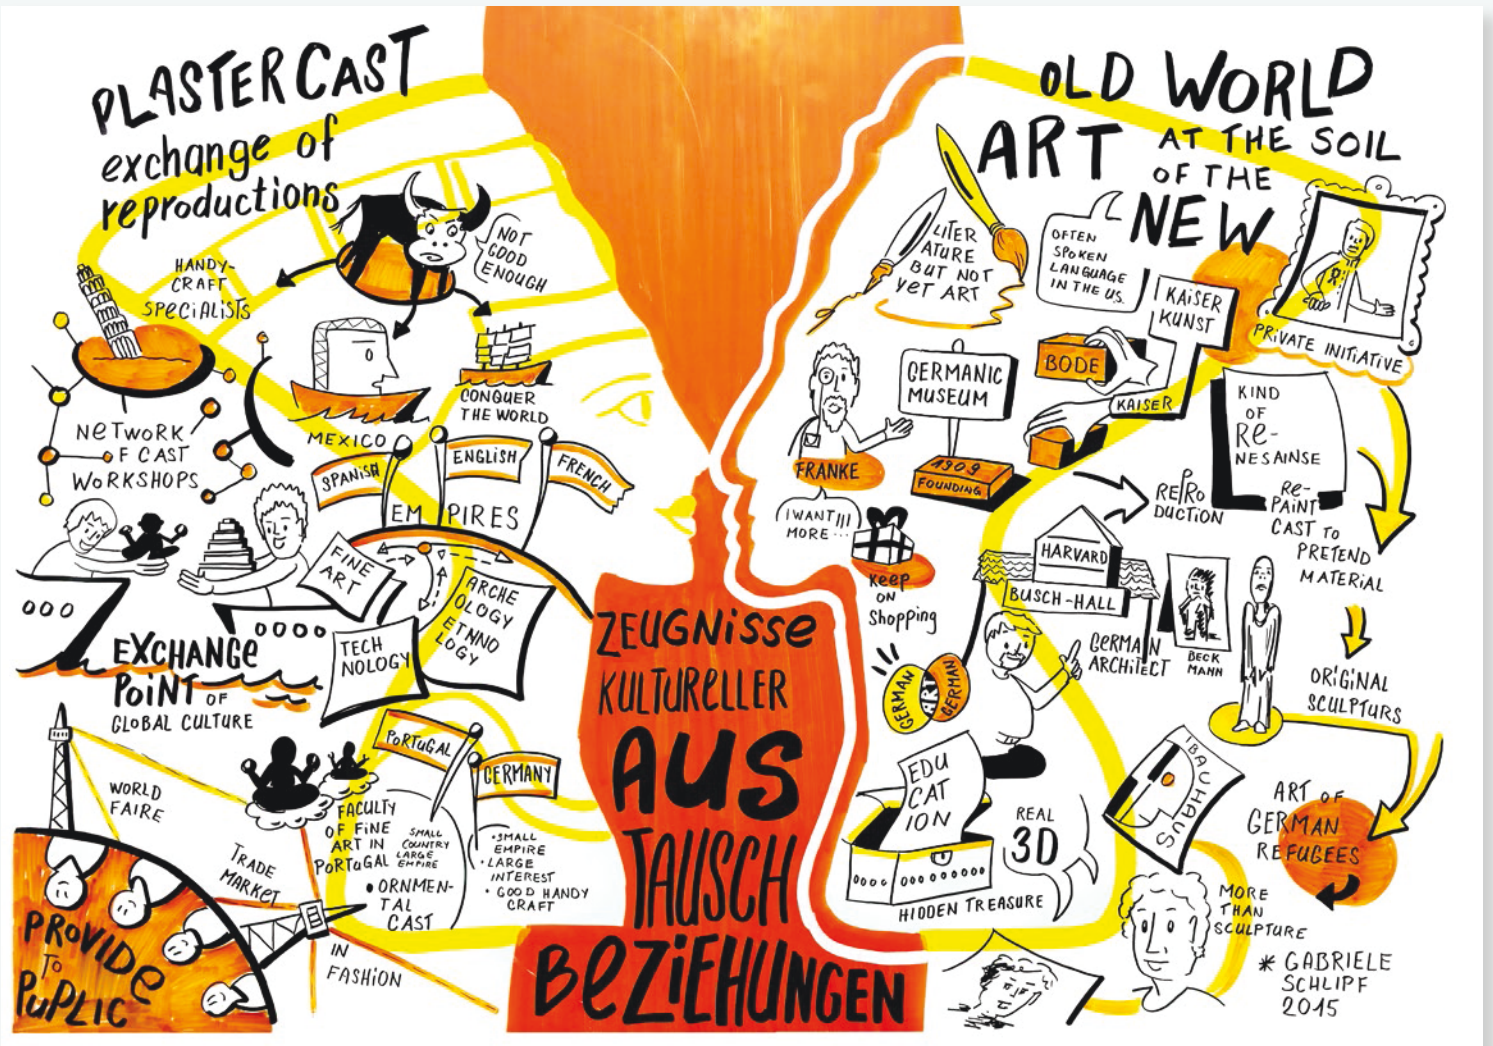 PLASTER CAST
exchange of
reproductions
HANDY-
CRAFT
SPECIALISTS
NOT
GOOD
ENOUGH
NETWORK
OF CAST
WORKSHOPS
MEXICO
CONQUER
THE WORLD
SPANISH
ENGLISH
FRENCH
EMPIRES
FINE
ART
ARCHE
OLOGY
ETNNO
LOGY
TECH
NOLOGY
EXCHANGE
POINT OF
GLOBAL CULTURE
WORLD
FAIRE
TRADE
MARKET
IN
FASHION
PROVIDE
TO
PUPLIC
PORTUGAL
GERMANY
FACULTY
OF FINE
ART IN
PORTUGAL
SMALL
COUNTRY
LARGE
EMPIRE
• ORNMEN-
TAL
CAST
• SMALL
EMPIRE
• LARGE
INTEREST
• GOOD HANDY
CRAFT
ZEUGNISSE
KULTURELLER
AUS
TAUSCH
BEZIEHUNGEN
OLD WORLD
ART AT THE SOIL
OF THE
NEW
LITER
ATURE
BUT NOT
YET ART
OFTEN
SPOKEN
LANGUAGE
IN THE US.
KAISER
KUNST
PRIVATE INITIATIVE
BODE
KAISER
GERMANIC
MUSEUM
1909
FOUNDING
FRANKE
I WANT!!!
MORE...
Keep
on
Shopping
KIND
OF
RE-
NESAINSE
REPRO
DUCTION
RE-
PAINT
CAST TO
PRETEND
MATERIAL
HARVARD
BUSCH-HALL
GERMAN
ARCHITECT
BECK
MANN
ORIGINAL
SCULPTURS
GERMAN
ART
GERMAN
EDU
CAT
ION
REAL
3D
HIDDEN TREASURE
BAUHAUS
ART OF
GERMAN
REFUGEES
MORE
THAN
SCULPTURE
* GABRIELE
SCHLIPF
2015